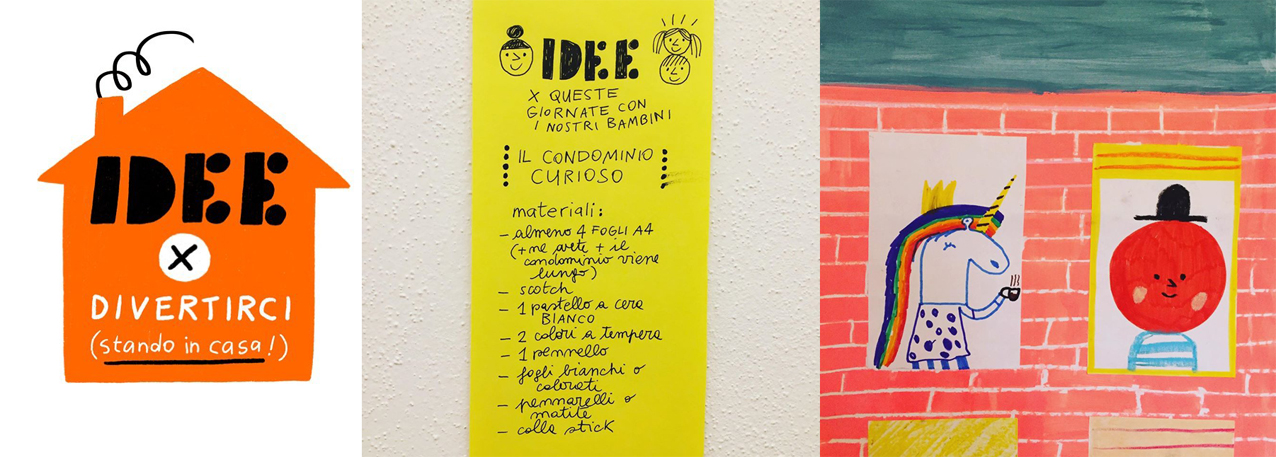 IDEE
X
DIVERTIRCI
(stando in casa!)
IDEE
X QUESTE
GIORNATE CON
I NOSTRI BAMBINI
IL CONDOMINIO
CURIOSO
materiali:
- almeno 4 FOGLI A4
(+ ne avete + il
condominio viene
lungo)
- scotch
- 1 pastello a cera
BIANCO
- 2 colori a tempera
- 1 pennello
- fogli bianchi o
colorati
- pennarelli o
matite
- colla stick